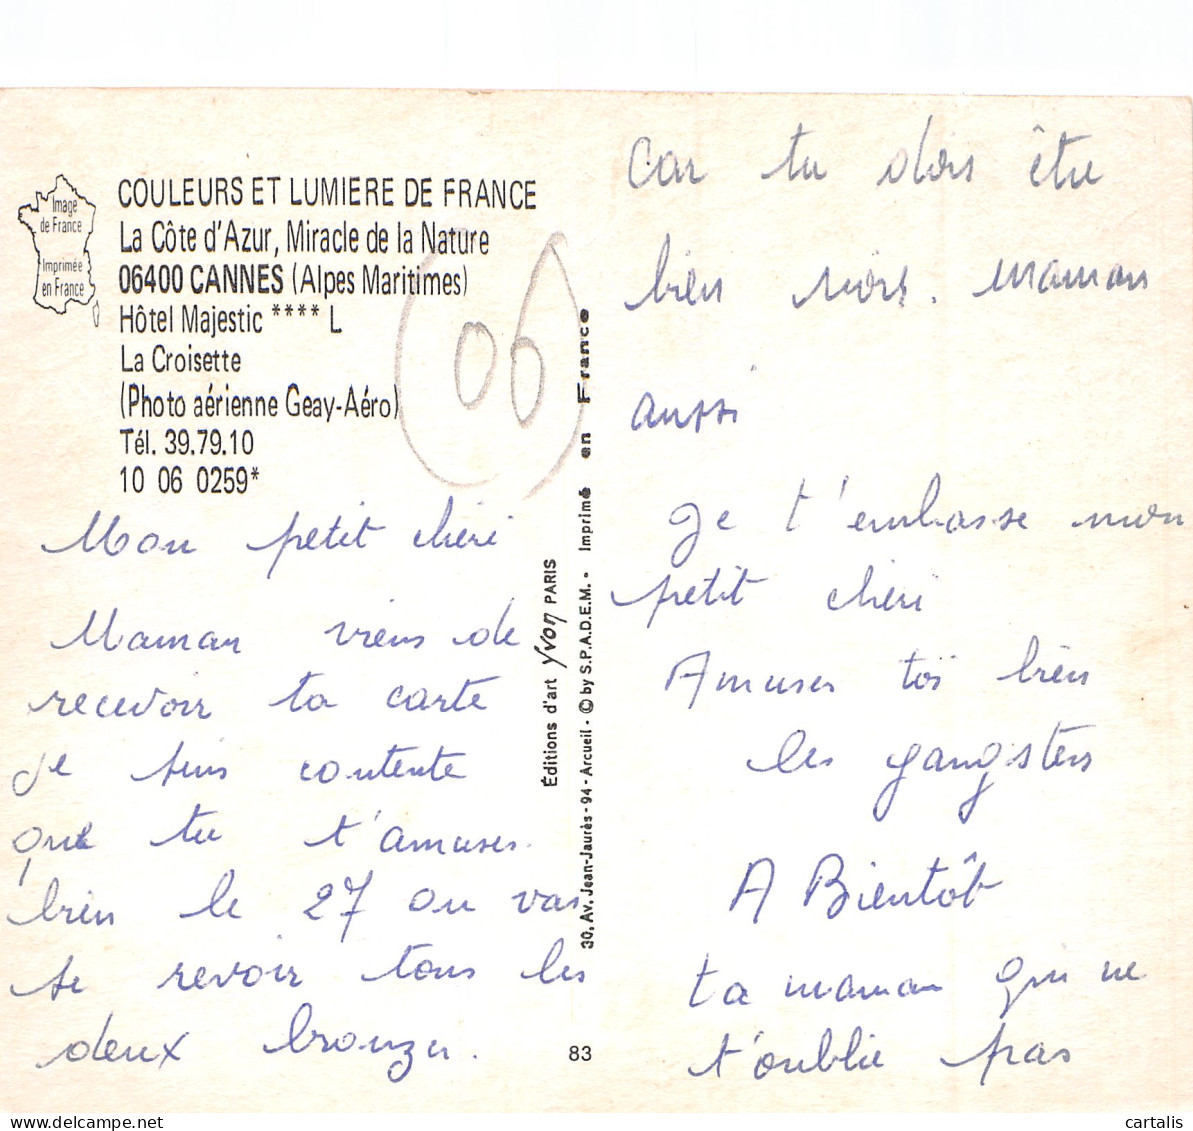 Image
de France
Imprimée
en France
COULEURS ET LUMIERE DE FRANCE
La Côte d'Azur, Miracle de la Nature
06400 CANNES (Alpes Maritimes)
Hôtel Majestic **** L
La Croisette
(Photo aérienne Geay-Aéro)
Tél. 39.79.10
10 06 0259*
(06)
Mon petit chéri
Maman viens de
recevoir ta carte
je suis contente
que tu t'amuses
bien le 27 on vas
se revoir tous les
deux bronzer.
Éditions d'art Yvon PARIS
30, Av. Jean-Jaurès - 94 - Arcueil - © by S.P.A.D.E.M. • Imprimé en France
83
car tu dois être
bien noir. maman
aussi
Je t'embrasse mon
petit chéri
Amuses toi bien
les gangsters
A Bientôt
ta maman qui ne
t'oublie pas
cartalis